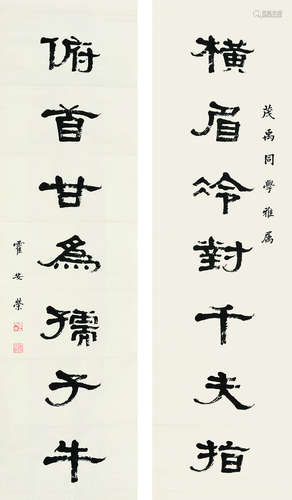 茂禹同學雅屬
橫眉冷對千夫指
俯首甘為孺子牛
霍安榮